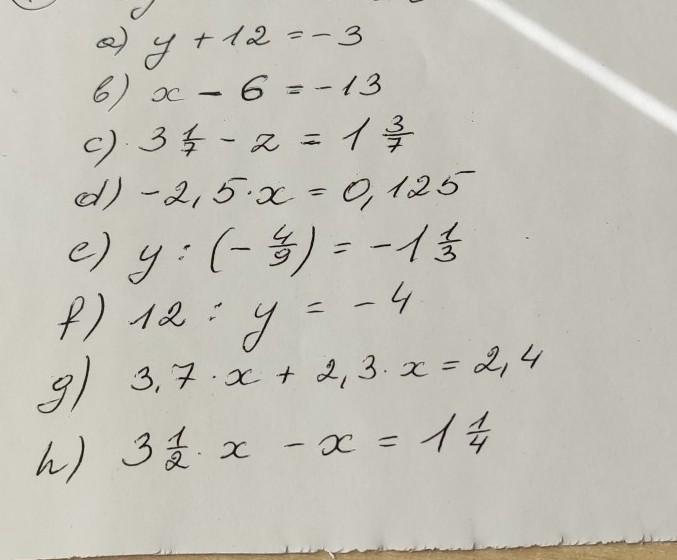 a) y + 12 = - 3
b) x - 6 = - 13
c) 3 1/7 - z = 1 3/7
d) - 2,5 · x = 0,125
e) y : (- 4/9) = - 1 1/3
f) 12 : y = - 4
g) 3,7 · x + 2,3 · x = 2,4
h) 3 1/2 · x - x = 1 1/4